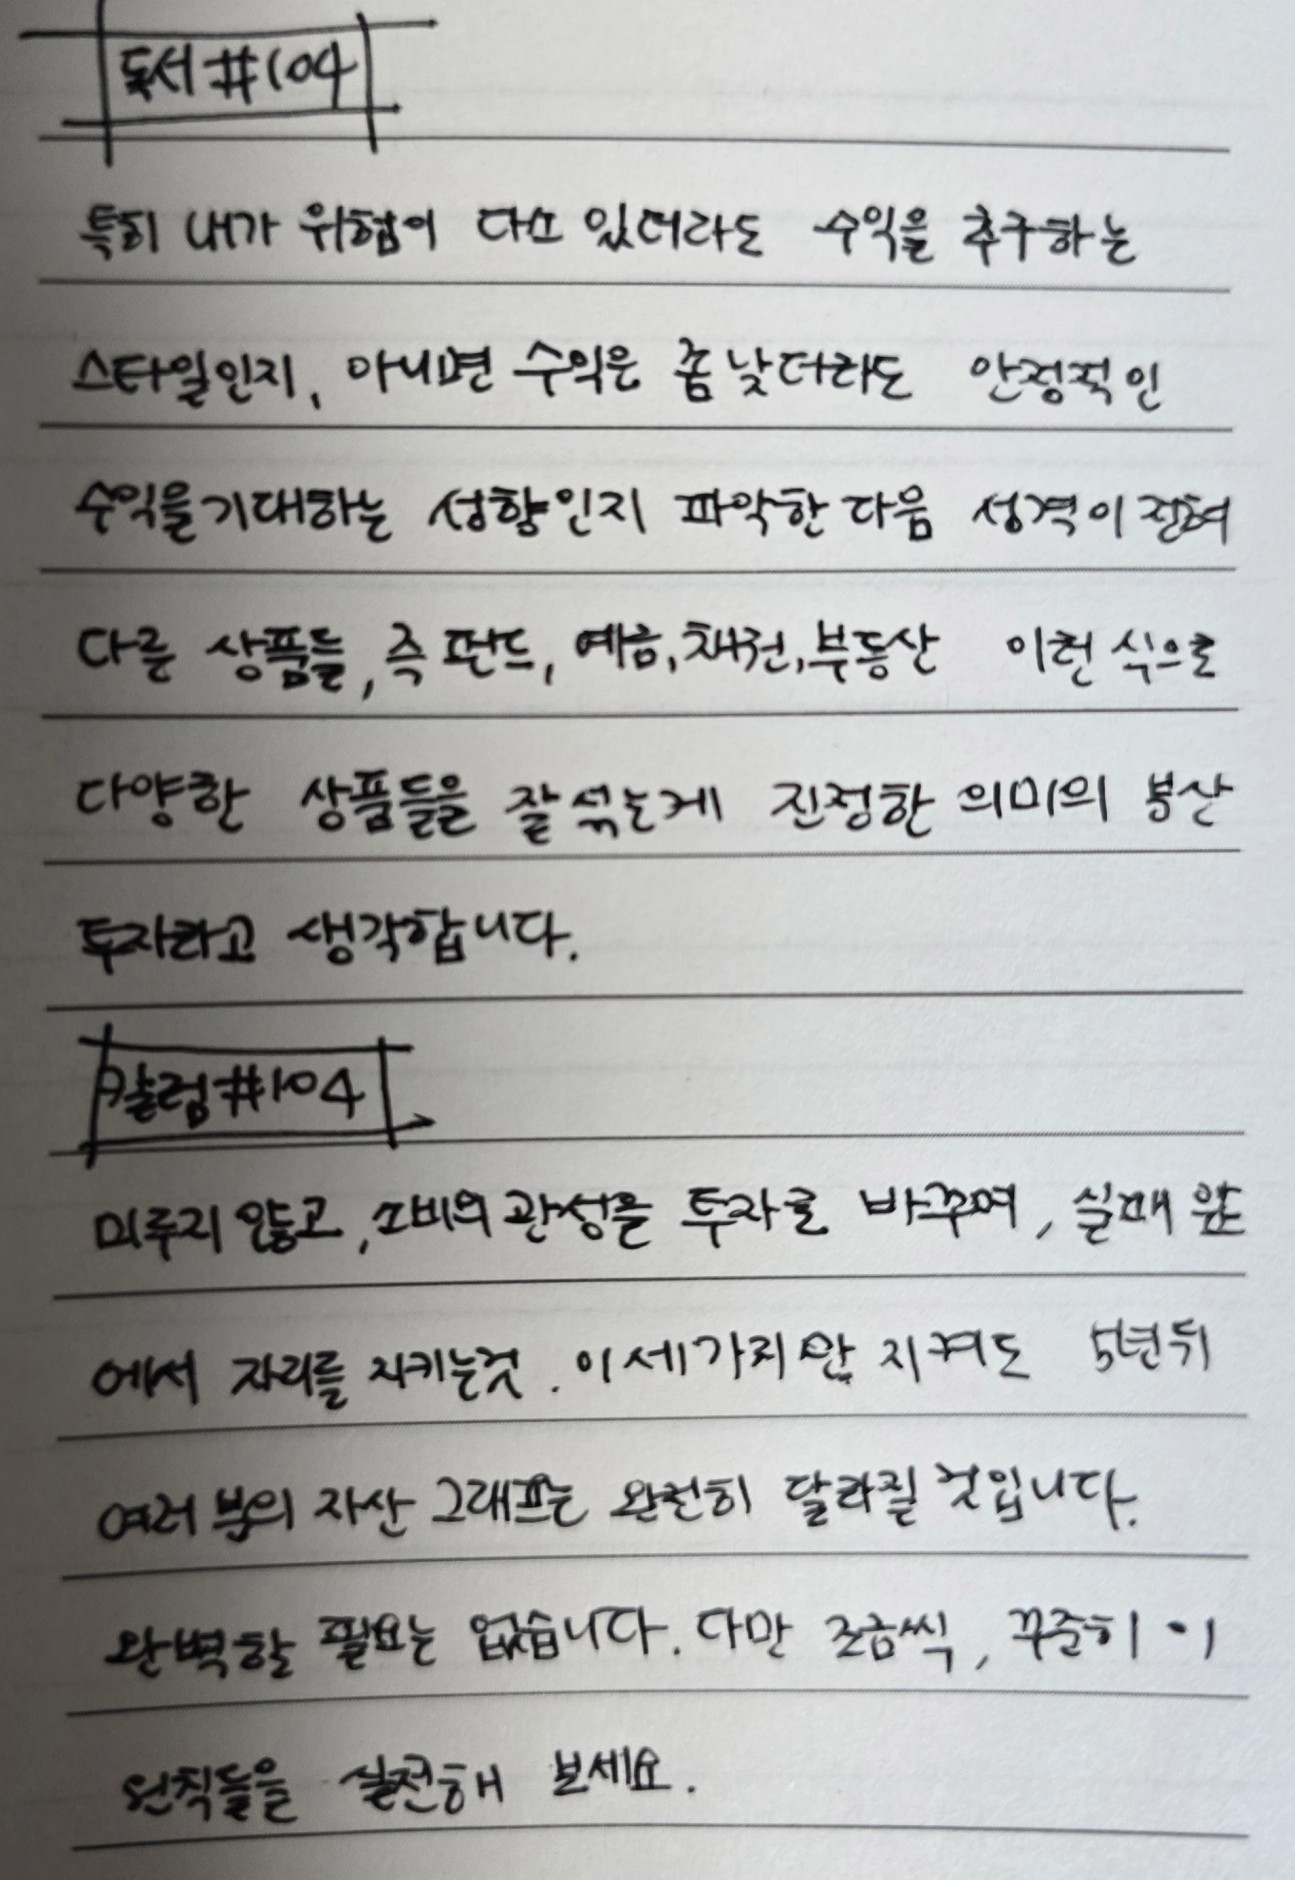 독서#104
특히 내가 위험이 다소 있더라도 수익을 추구하는
스타일인지, 아니면 수익은 좀 낮더라도 안정적인
수익을 기대하는 성향인지 파악한 다음 성격이 전혀
다른 상품들, 즉 펀드, 예금, 채권, 부동산 이런 식으로
다양한 상품들을 잘 섞는게 진정한 의미의 분산
투자라고 생각합니다.
칼럼#104
미루지 않고, 소비의 관성을 투자로 바꾸며, 실패 앞
에서 자리를 지키는것. 이 세가지만 지켜도 5년뒤
여러분의 자산 그래프는 완전히 달라질 것입니다.
완벽할 필요는 없습니다. 다만 조금씩, 꾸준히 이
원칙들을 실천해 보세요.